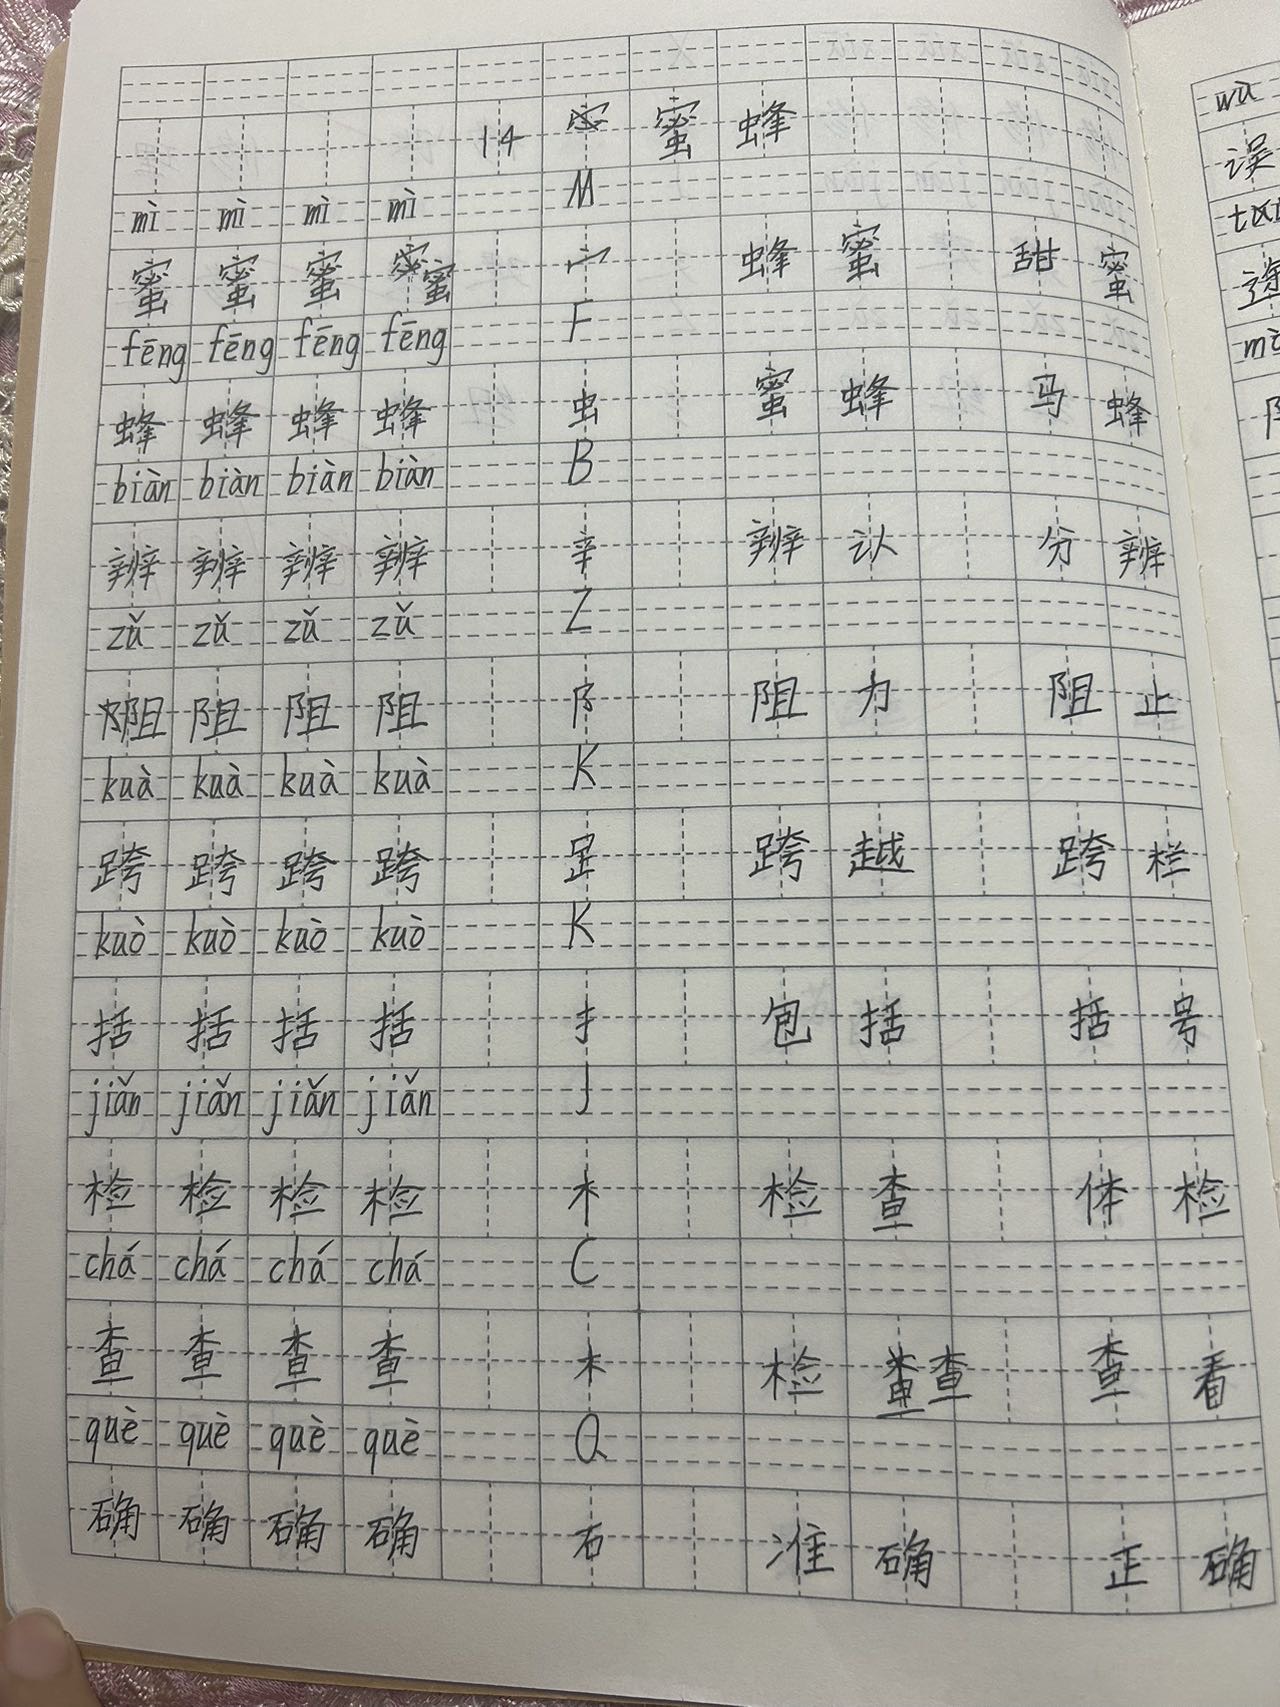 14 蜜蜂
mì mì mì mì M
蜜 蜜 蜜 蜜 宀 蜂蜜 甜蜜
fēng fēng fēng fēng F
蜂 蜂 蜂 蜂 虫 蜜蜂 马蜂
biàn biàn biàn biàn B
辨 辨 辨 辨 辛 辨认 分辨
zǔ zǔ zǔ zǔ Z
阻 阻 阻 阻 阝 阻力 阻止
kuà kuà kuà kuà K
跨 跨 跨 跨 𧾷 跨越 跨栏
kuò kuò kuò kuò K
括 括 括 括 扌 包括 括号
jiǎn jiǎn jiǎn jiǎn J
检 检 检 检 木 检查 体检
chá chá chá chá C
查 查 查 查 木 检查 查看
què què què què Q
确 确 确 确 石 准确 正确
wù
误